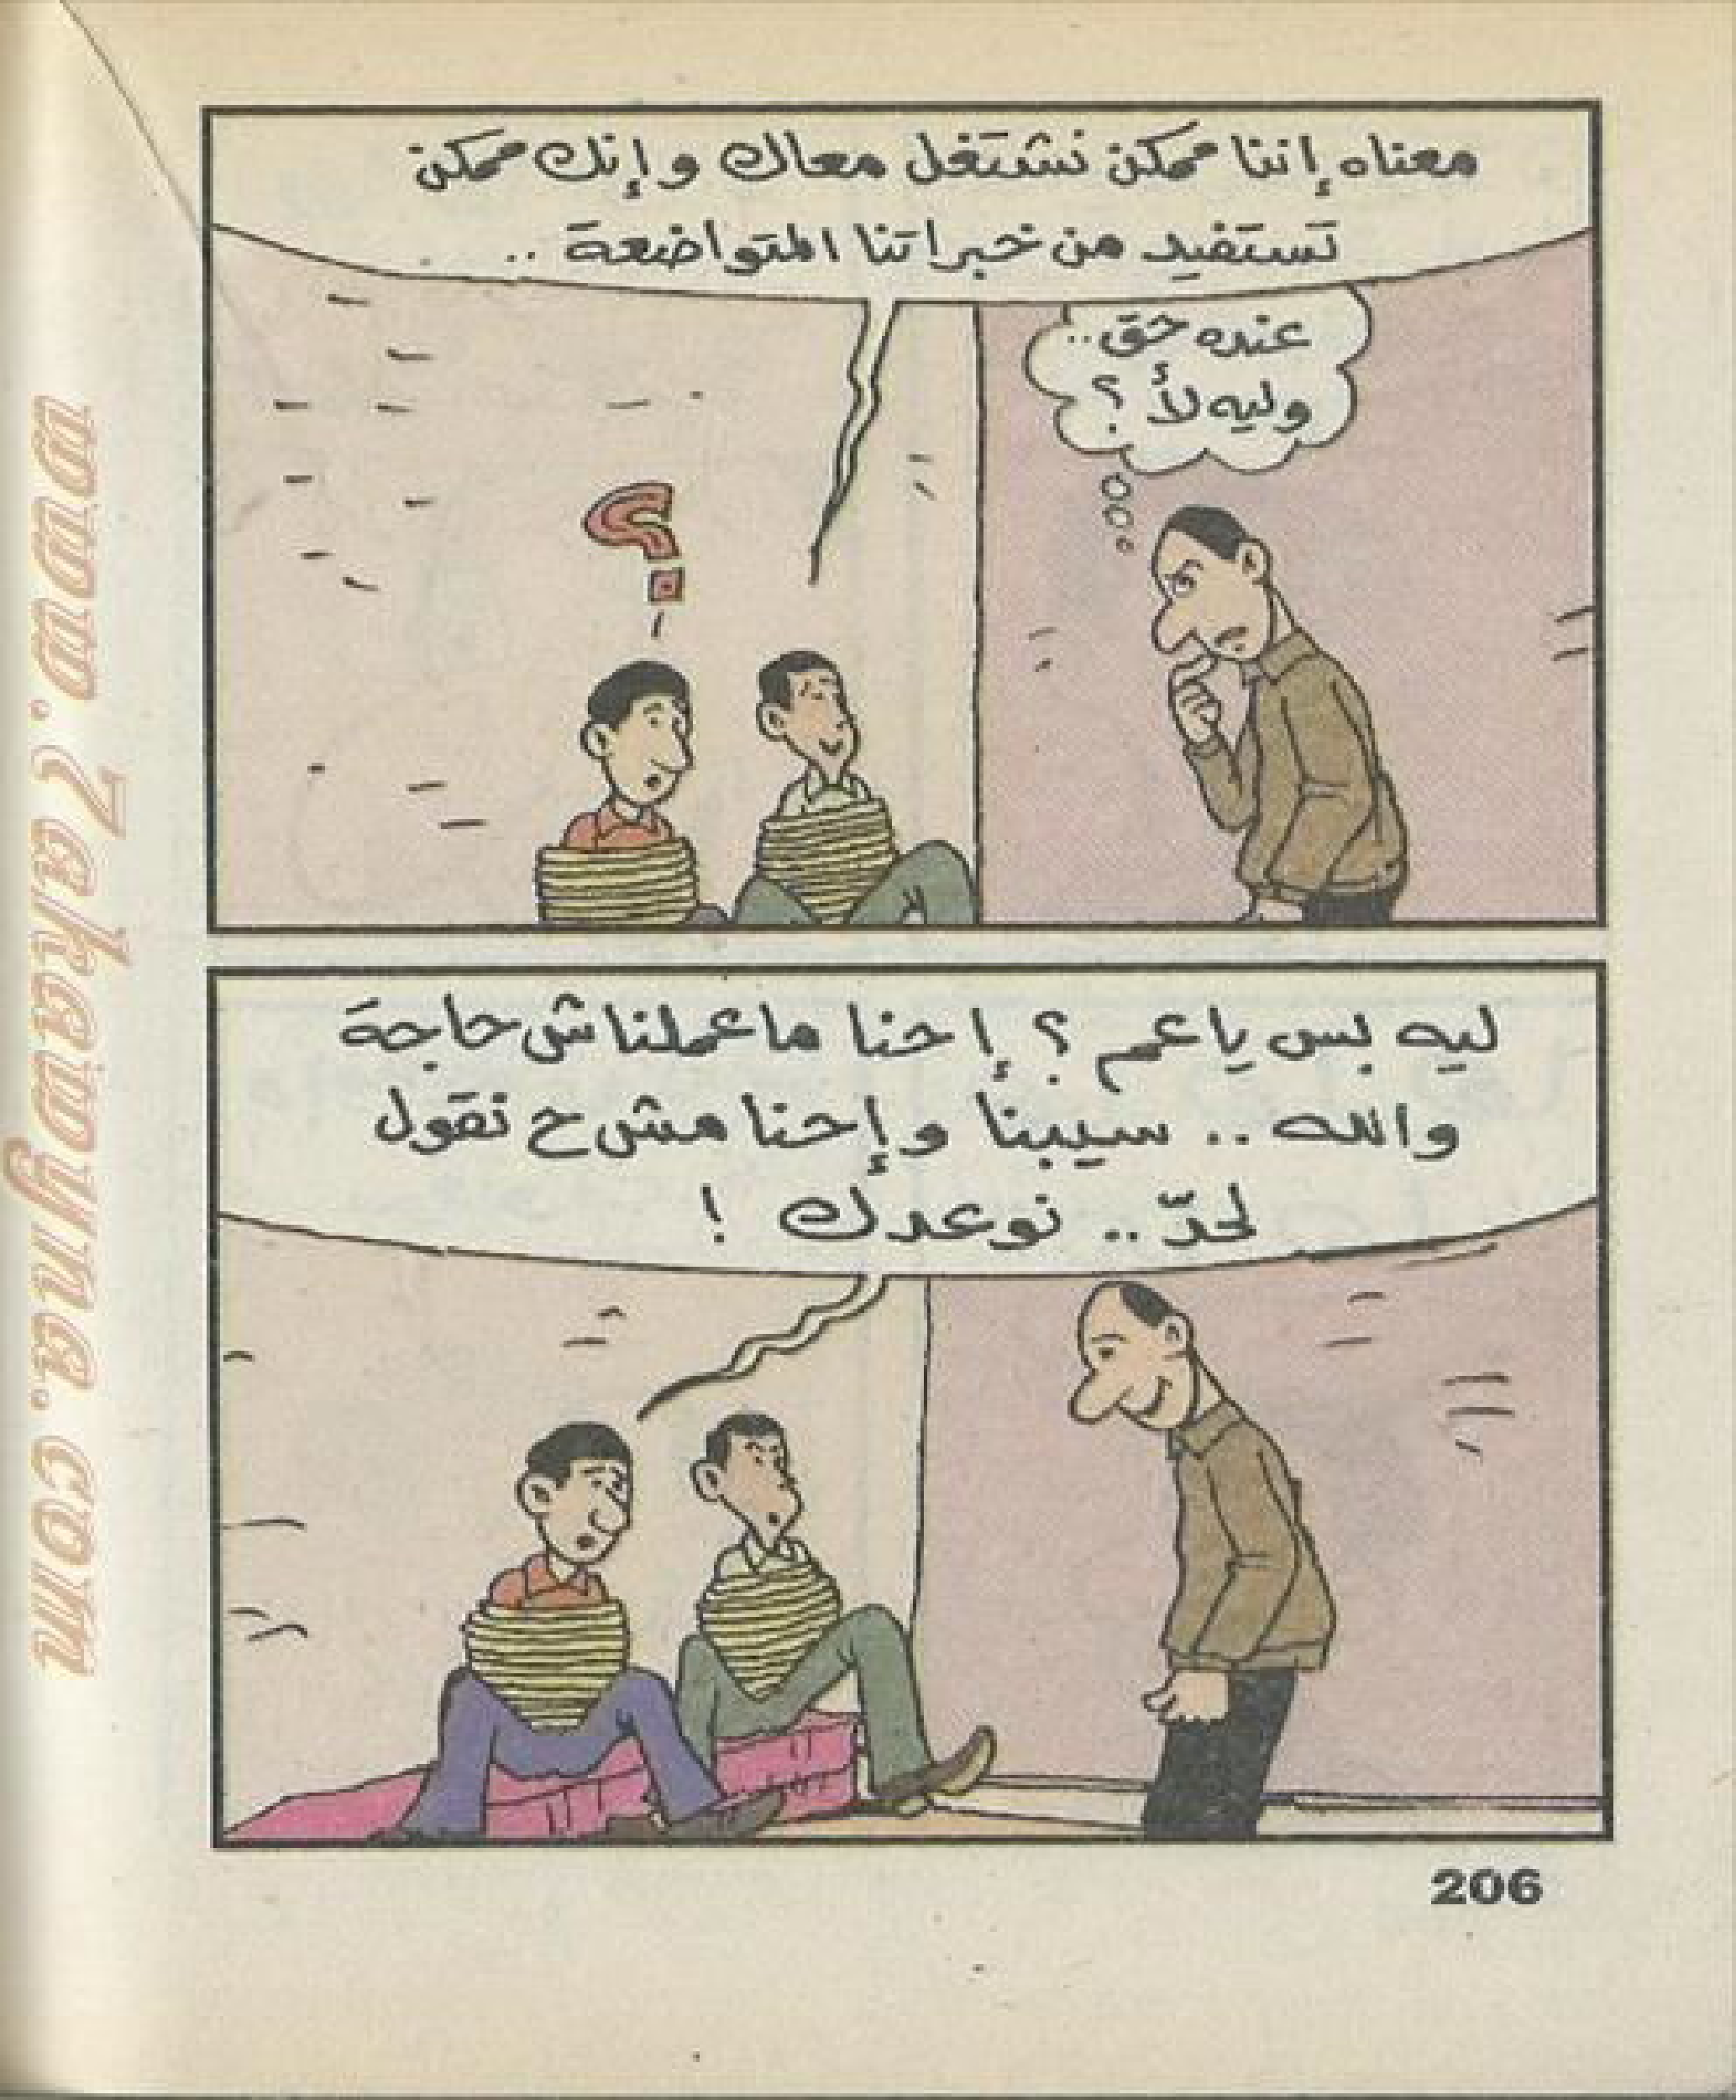 معناه إننا ممكن نشتغل معاك وإنك ممكن
تستفيد من خبراتنا المتواضعة ..
عنده حق ..
وليه لأ ؟
؟
ليه بس ياعم ؟ إحنا ماعملناش حاجة
والله .. سيبنا وإحنا مش ح نقول
لحدّ .. نوعدك !
206
www.7akawyina.com